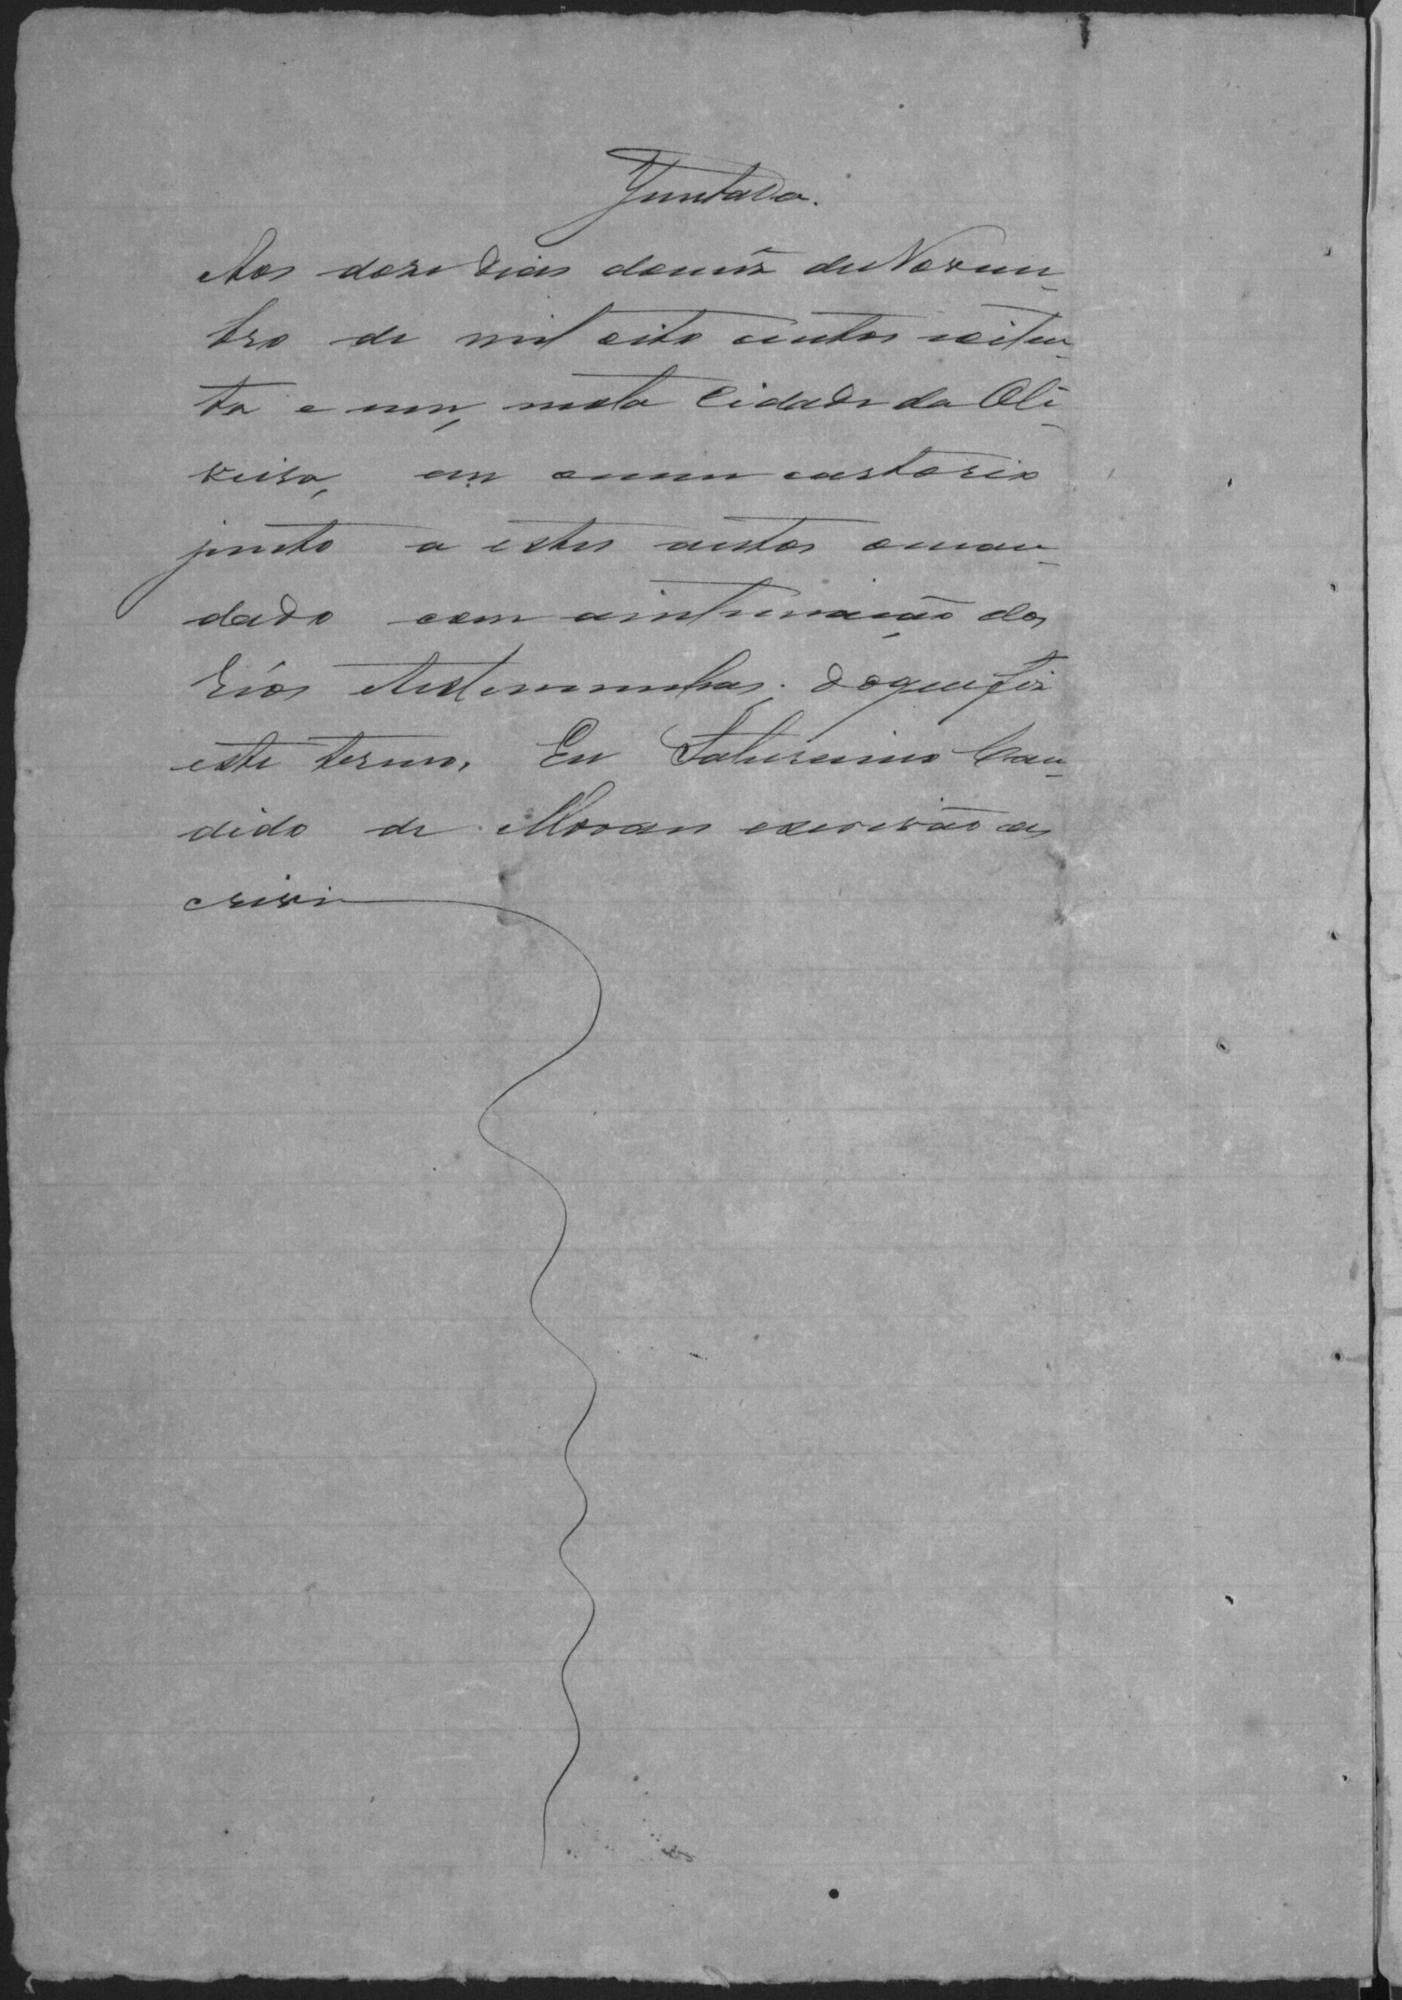 Juntada.
Aos doze dias do mez de Novem-
bro de mil oito centos e oiten-
ta e um, nesta Cidade da Oli-
veira, em o meu cartorio
junto a estes autos o man-
dado com a intimação dos
réos e testemunhas; do que fiz
este termo. Eu Saturnino Can-
dido de Moraes escrivão es
crivi